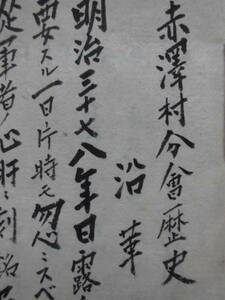 赤澤村分會歴史
沿革
明治三十七八年日露
要スル一日片時モ忽心ニスベ
從軍者ノ心肝ニ刻銘